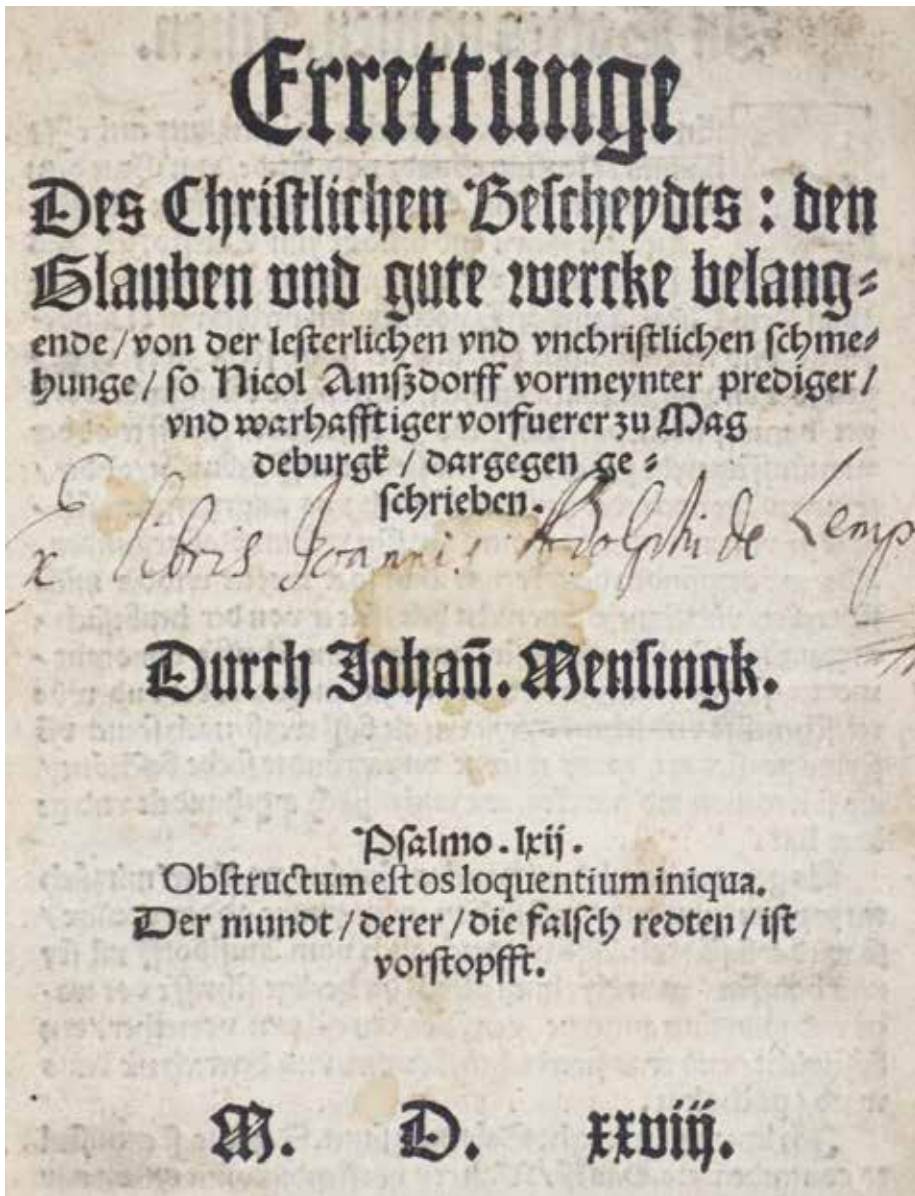 Errettunge
Des Christlichen Bescheydts : den
Glauben vnd gute wercke belang⸗
ende / von der lesterlichen vnd vnchristlichen schme⸗
hunge / so Nicol Amszdorff vormeynter prediger /
vnd warhafftiger vorfuerer zu Mag
deburgk / dargegen ge⸗
schrieben .
Ex libris Joannis Rdolphi de Lemp
Durch Johan̄. Mensingk.
Psalmo . lxij .
Obstructum est os loquentium iniqua.
Der mundt / derer / die falsch redten / ist
vorstopfft.
M. D. xxviij.